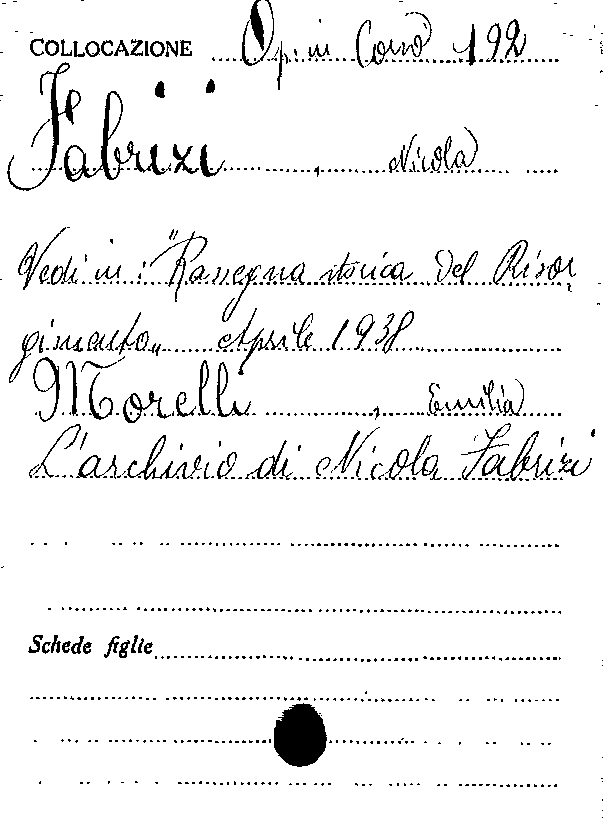 COLLOCAZIONE Op. in Cons 192
Fabrizi, Nicola
Vedi in: "Rassegna storica del Risor
gimento" Aprile 1938
Morelli, Emilia
L'archivio di Nicola Fabrizi
Schede figlie